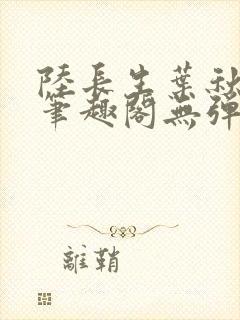 陸長生葉秋
筆趣閣無彈
離鞘